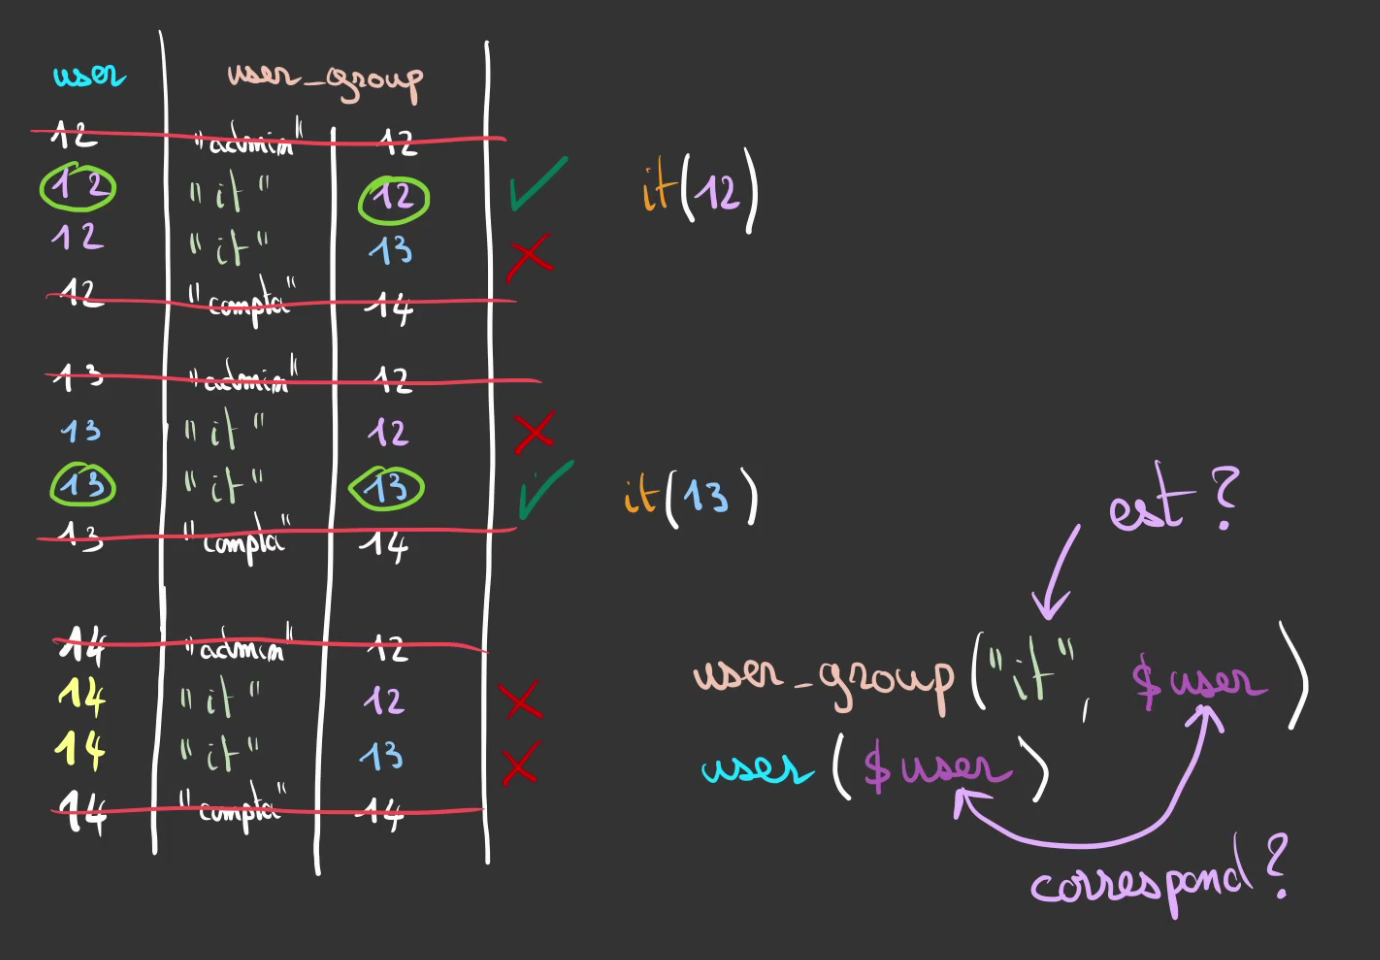 user user_group
12 "admin" 12
12 "it" 12 it(12)
12 "it" 13
12 "compta" 14
13 "admin" 12
13 "it" 12
13 "it" 13 it(13)
13 "compta" 14
est ?
14 "admin" 12
14 "it" 12
14 "it" 13
14 "compta" 14
user_group("it", $user)
user($user)
correspond ?